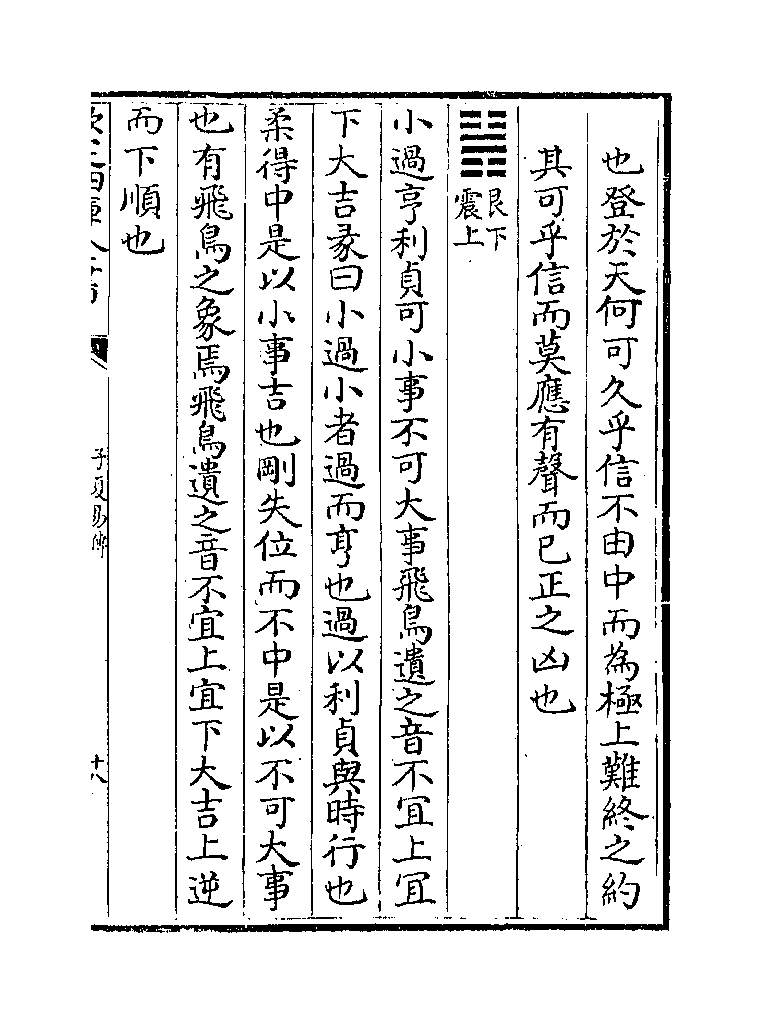 也登於天何可久乎信不由中而為極上難終之約
其可乎信而莫應有聲而已正之凶也
䷽艮下震上
小過亨利貞可小事不可大事飛鳥遺之音不宜上宜
下大吉彖曰小過小者過而亨也過以利貞與時行也
柔得中是以小事吉也剛失位而不中是以不可大事
也有飛鳥之象焉飛鳥遺之音不宜上宜下大吉上逆
而下順也
子夏易傳
十八